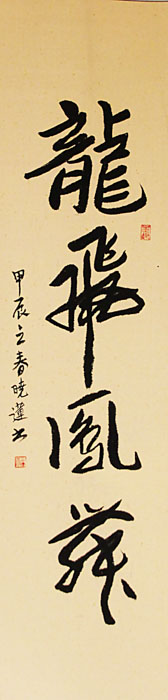 龍飛鳳舞
甲辰立春曉蓮書